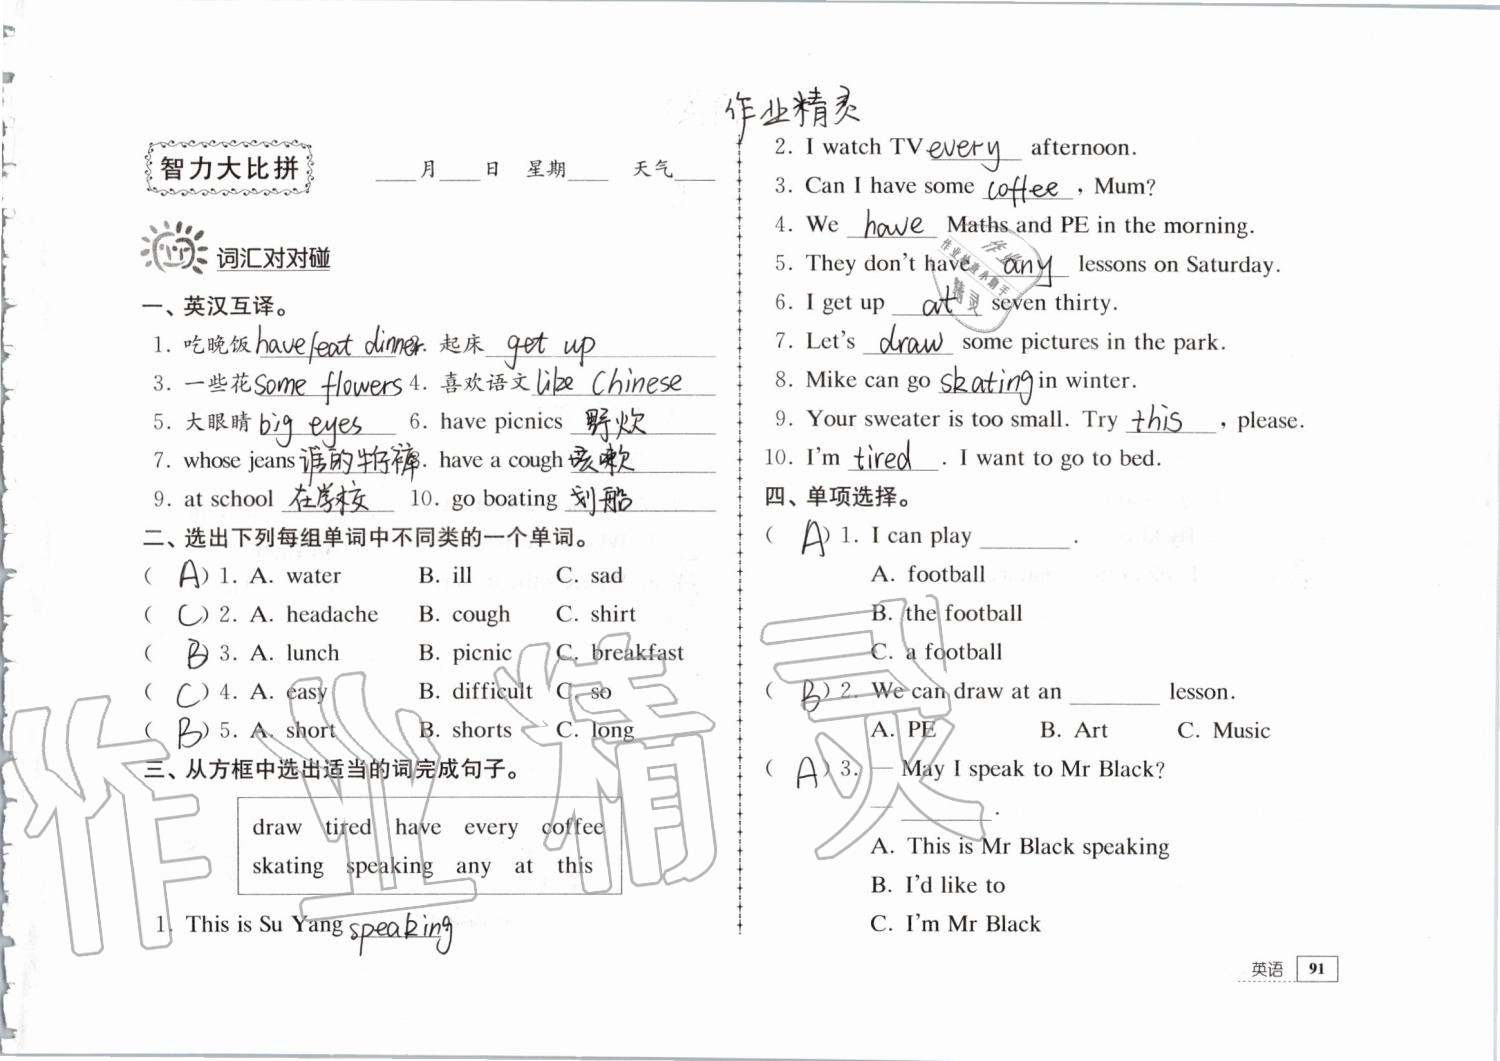 作业精灵
智力大比拼 ____月____日 星期____ 天气____
词汇对对碰
一、英汉互译。
1. 吃晚饭 have/eat dinner 2. 起床 get up
3. 一些花 some flowers 4. 喜欢语文 like Chinese
5. 大眼睛 big eyes 6. have picnics 野炊
7. whose jeans 谁的牛仔裤 8. have a cough 咳嗽
9. at school 在学校 10. go boating 划船
二、选出下列每组单词中不同类的一个单词。
( A ) 1. A. water B. ill C. sad
( C ) 2. A. headache B. cough C. shirt
( B ) 3. A. lunch B. picnic C. breakfast
( C ) 4. A. easy B. difficult C. so
( B ) 5. A. short B. shorts C. long
三、从方框中选出适当的词完成句子。
draw tired have every coffee
skating speaking any at this
1. This is Su Yang speaking
2. I watch TV every afternoon.
3. Can I have some coffee, Mum?
4. We have Maths and PE in the morning.
5. They don't have any lessons on Saturday.
6. I get up at seven thirty.
7. Let's draw some pictures in the park.
8. Mike can go skating in winter.
9. Your sweater is too small. Try this, please.
10. I'm tired. I want to go to bed.
四、单项选择。
( A ) 1. I can play ________.
A. football
B. the football
C. a football
( B ) 2. We can draw at an ________ lesson.
A. PE B. Art C. Music
( A ) 3. — May I speak to Mr Black?
— ________.
A. This is Mr Black speaking
B. I'd like to
C. I'm Mr Black
英语 91
作业精灵